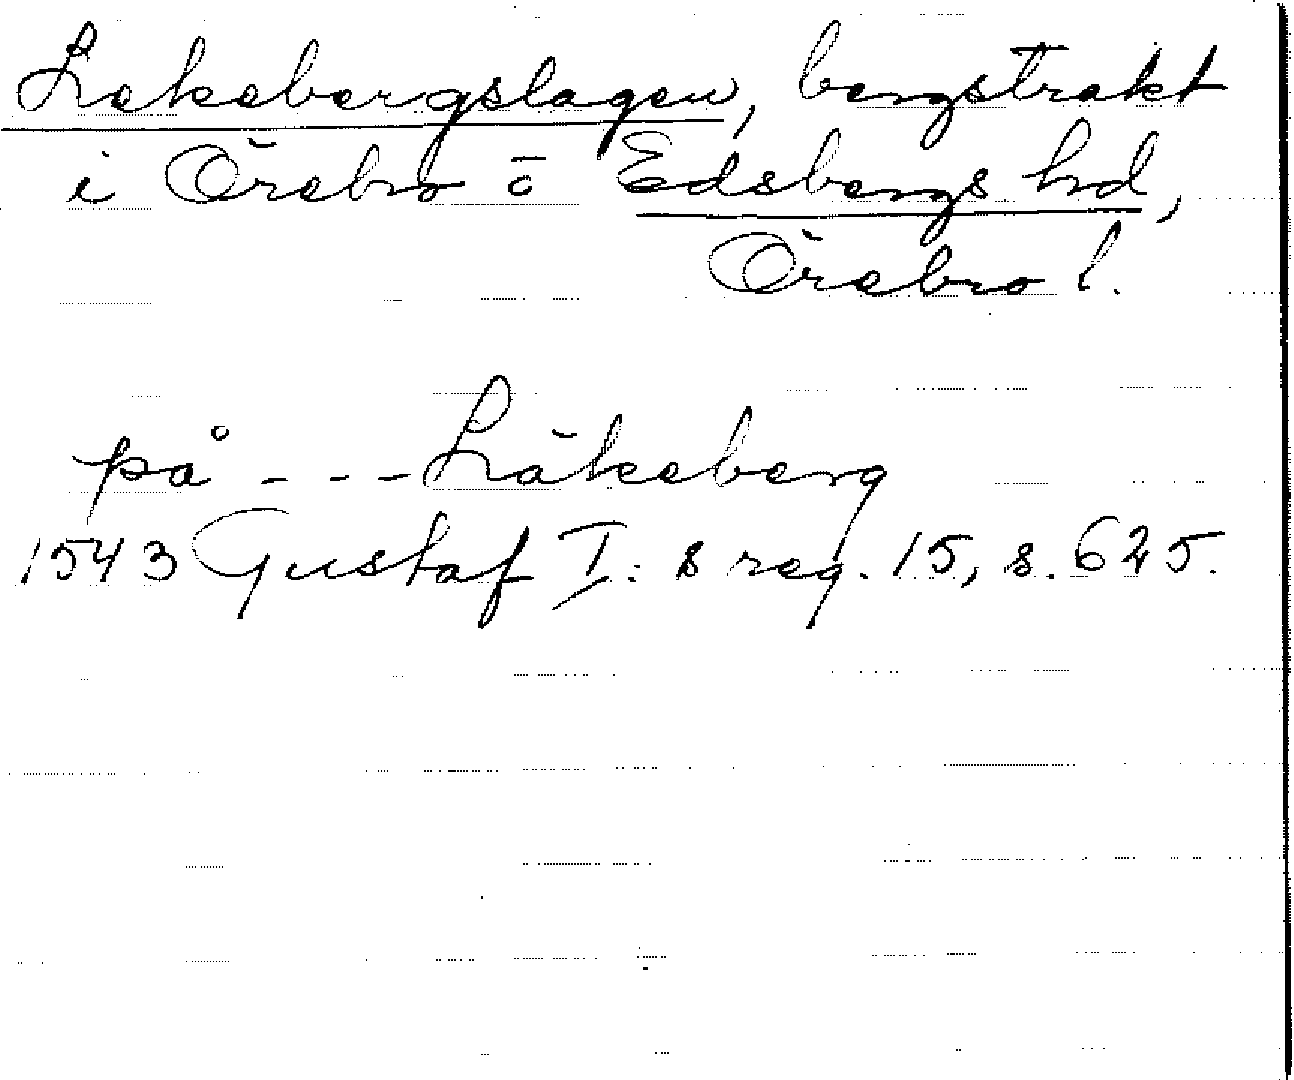 Lekebergslagen, bergstrakt
i Örebro o Edsbergs hd,
Örebro l.
på - - - Läkeberg
1543 Gustaf I: s reg. 15, s. 625.